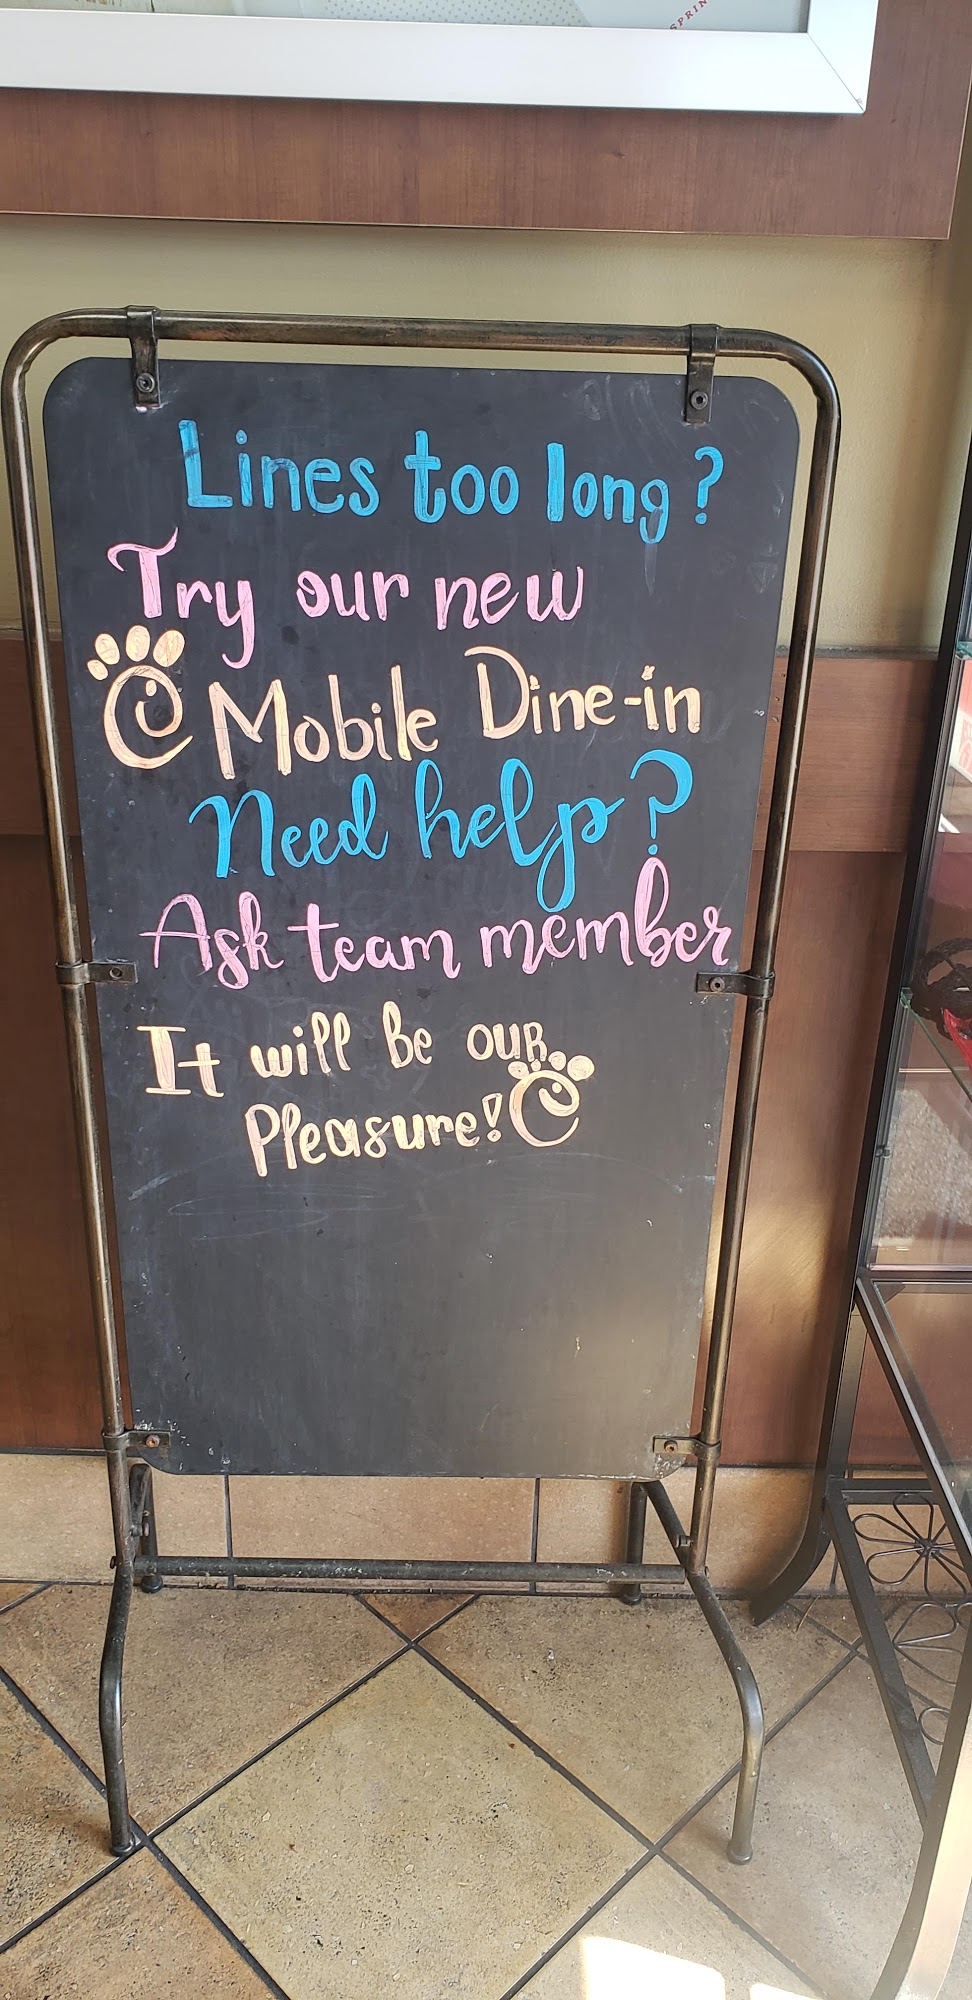 SPRIN
Lines too long?
Try our new
Mobile Dine-in
Need help?
Ask team member
It will be our
Pleasure!